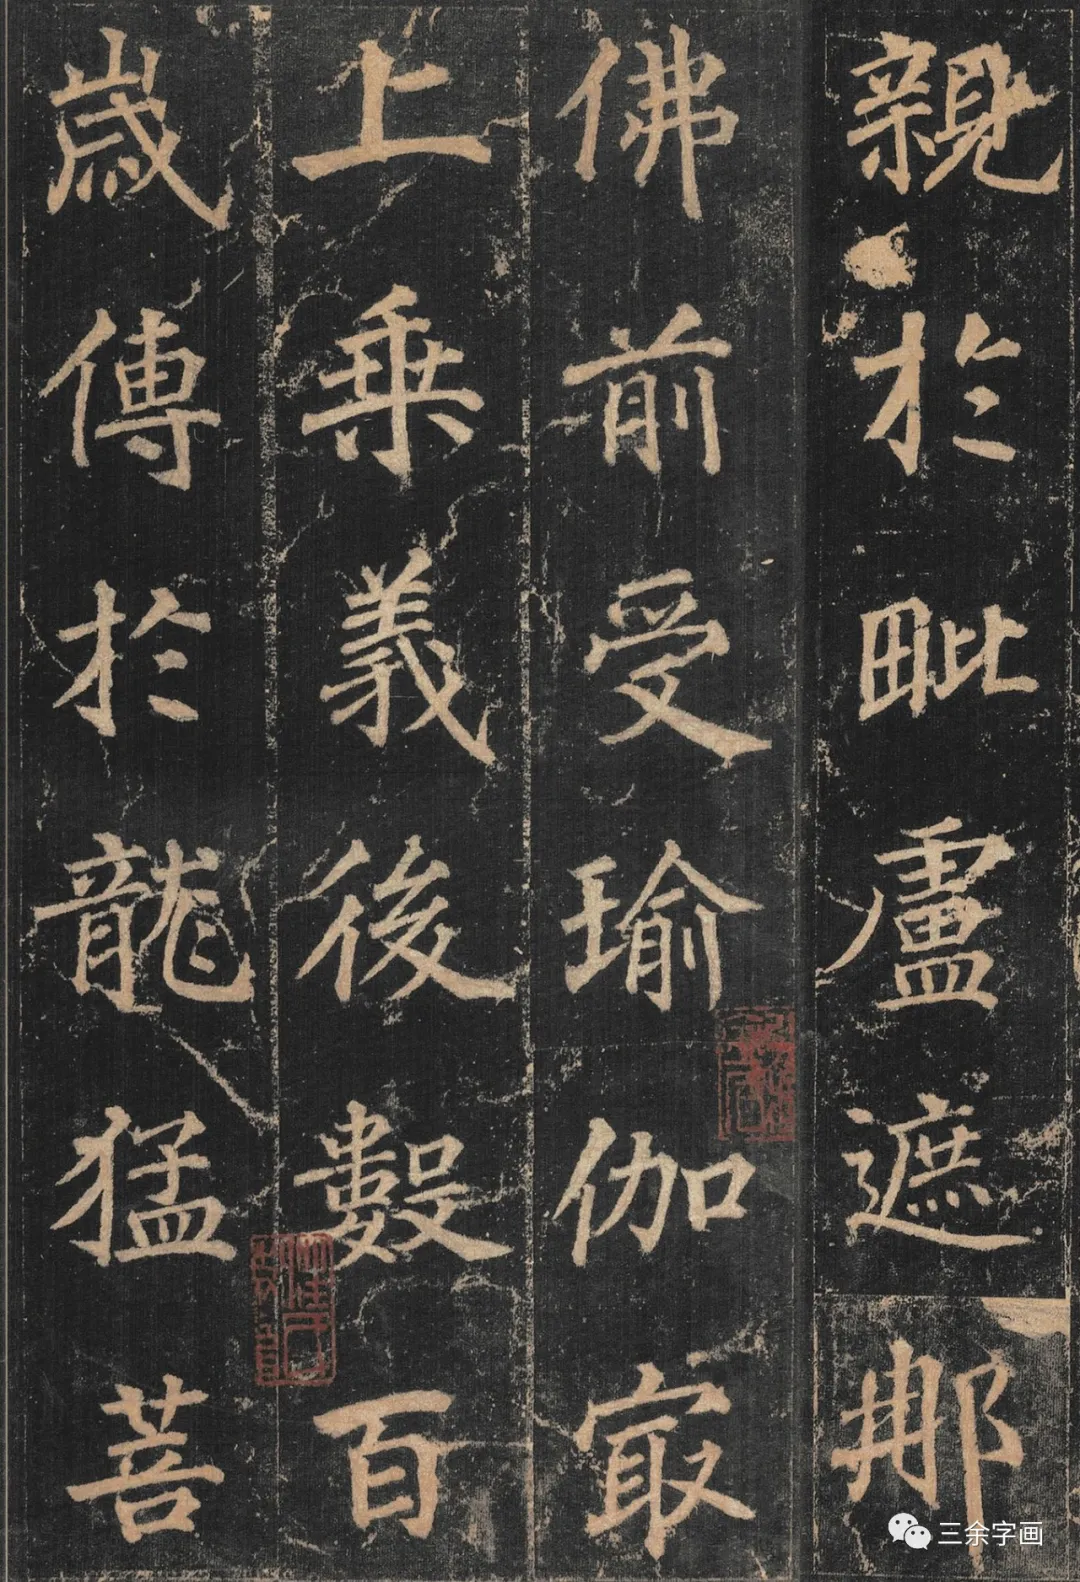 親於毗盧遮那
佛前受瑜伽冣
上乗義後數百
歳傳於龍猛菩
三余字画